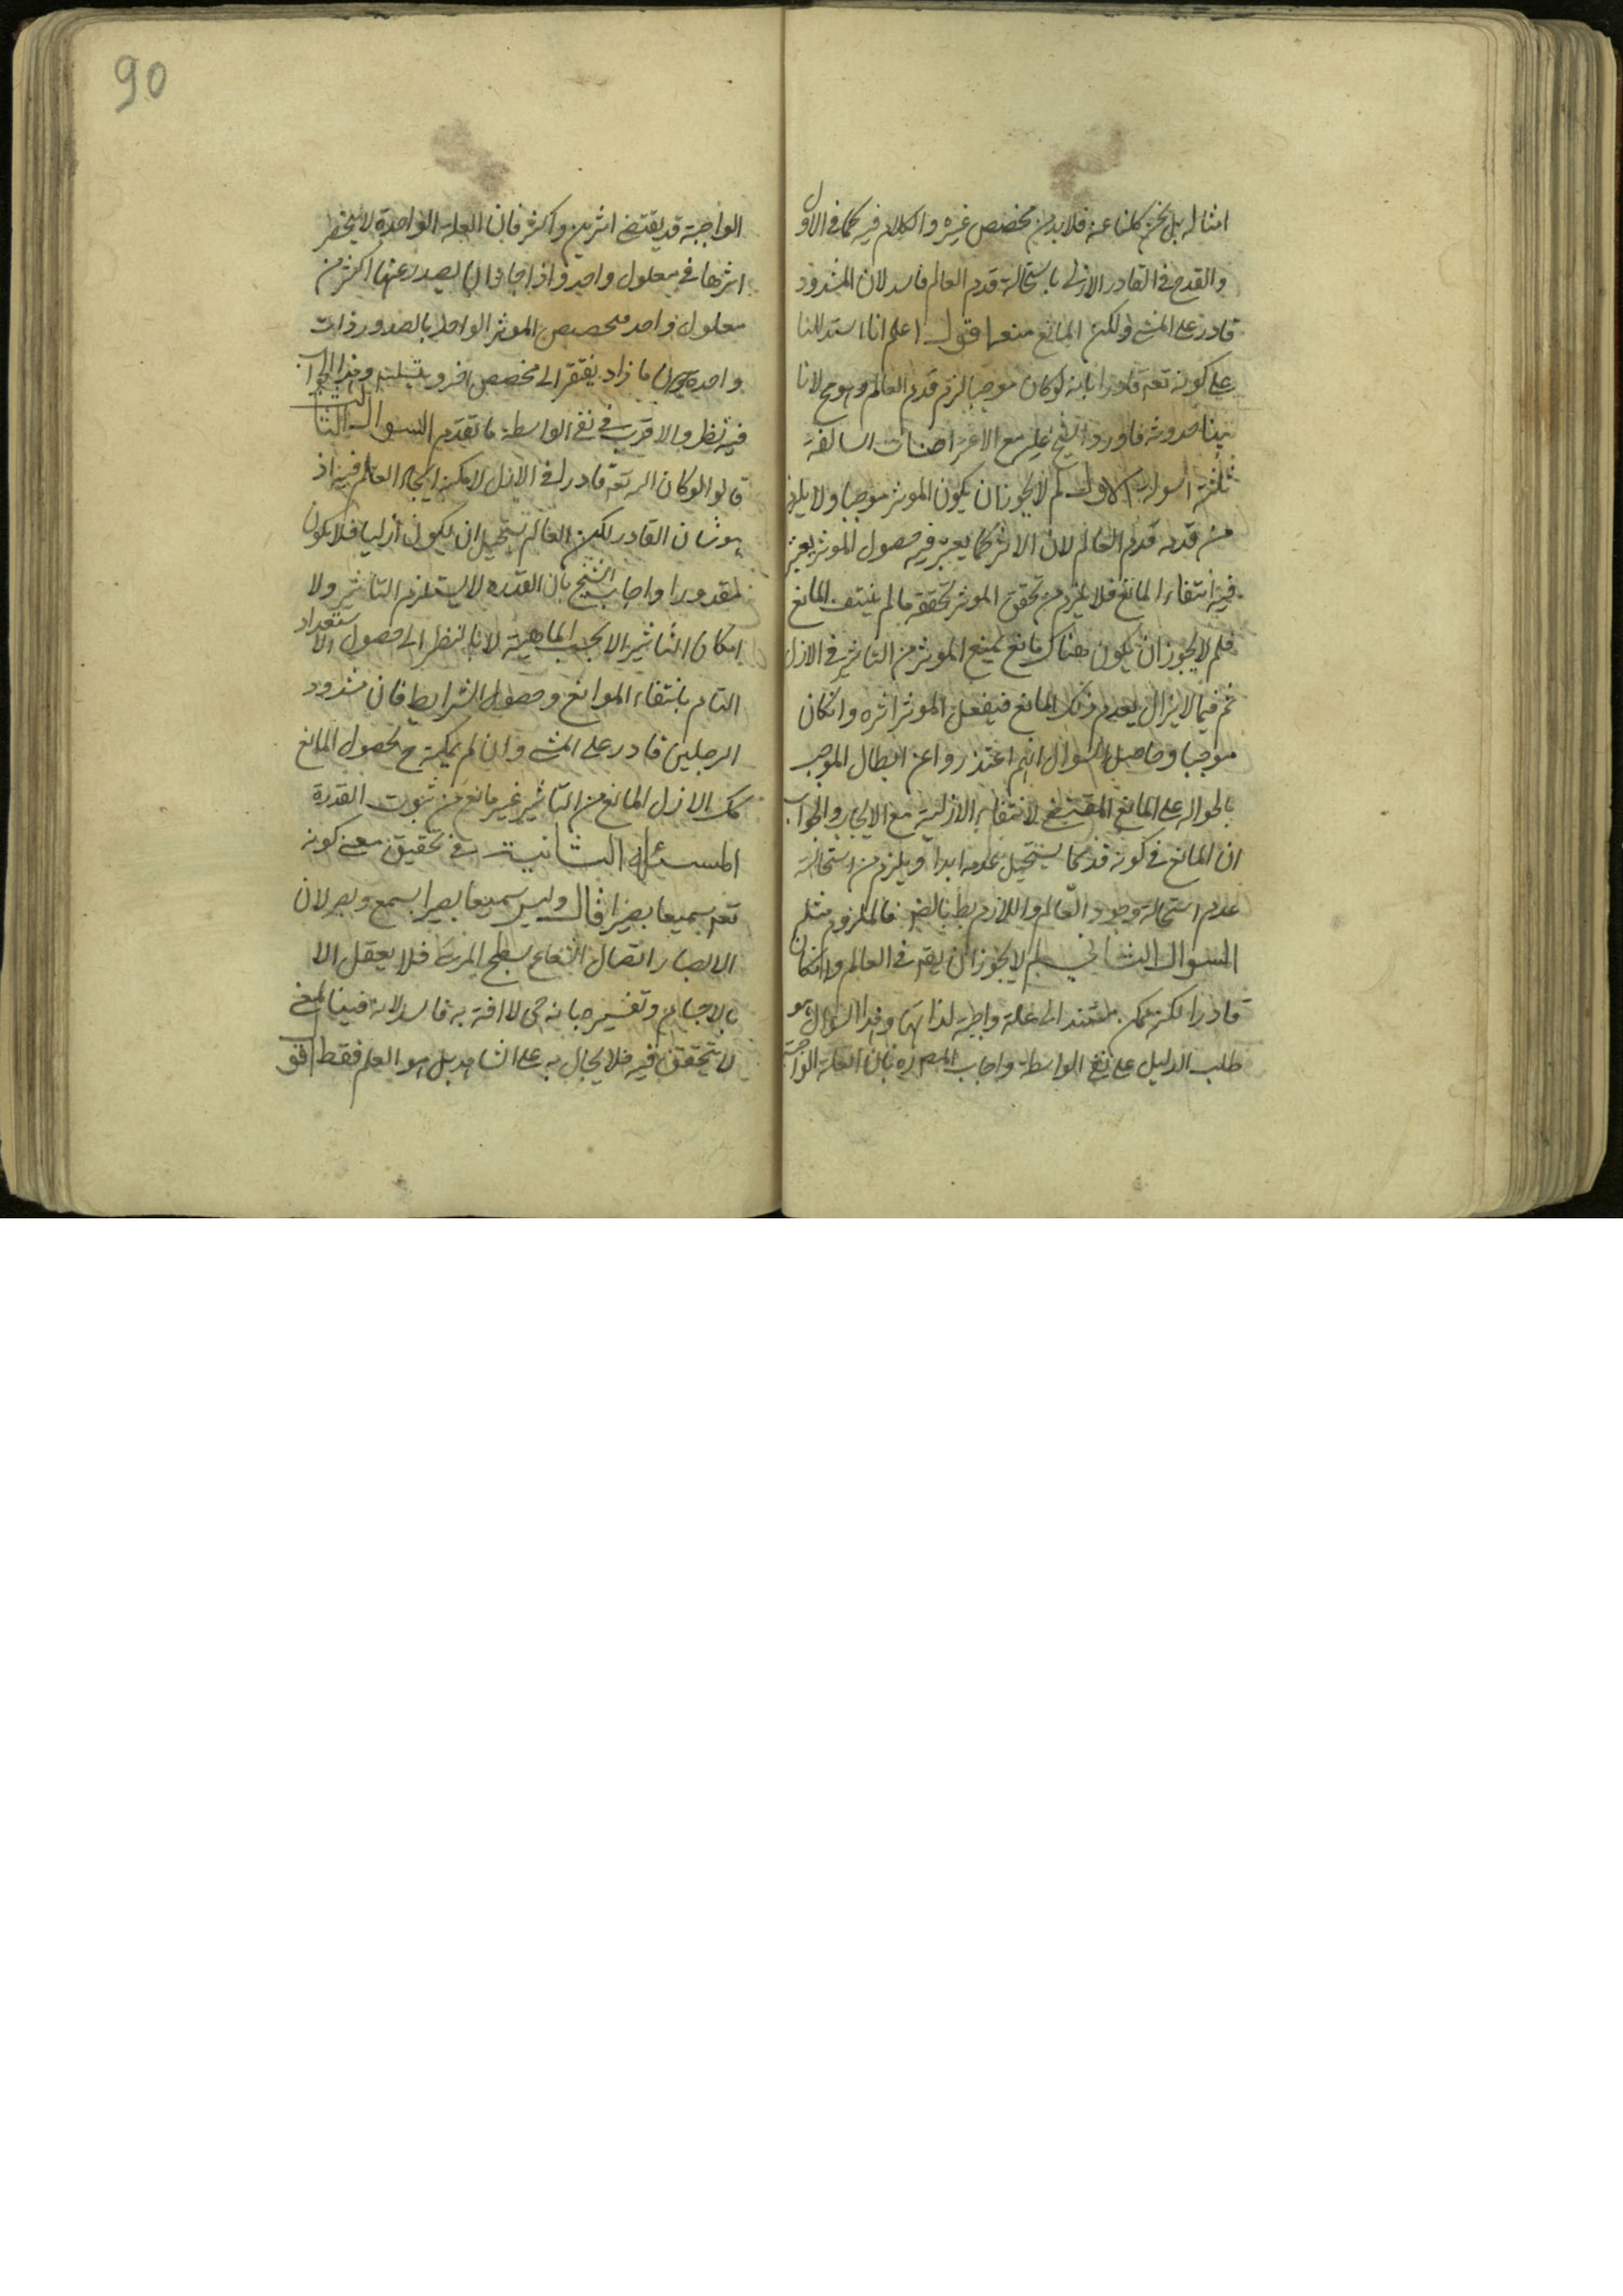 امثاله بل نحن كلنا عنه فلا بد من مخصص غيره والكلام فيه كما في الاول
والقدح في القادر الازلى باستحالة قدم العالم فاسد لان المشدود
قادر على المشى ولكن المانع منعه اقول اعلم انا استدللنا
على كونه تعه قادرا بانه لو كان موجبا لزم قدم العالم وهو مح لانا
بينا حدوثه فاورد الشيخ عليه مع الاعتراضات السالفة
ثلثة اسولة الاول لم لا يجوز ان يكون الموثر موجبا ولا يلزم
من قدمه قدم العالم لان الاثر كما يعتبر فيه حصول الموثر يعتبر
فيه انتفاء المانع فلا يلزم من تحقق الموثر تحققه ما لم ينتف المانع
فلم لا يجوز ان يكون هناك مانع يمنع الموثر من التاثير في الازل
ثم فيما لا يزال يعدم ذلك المانع فيفعل الموثر اثره وان كان
موجبا وحاصل السوال انهم اعتذروا عن ابطال الموجب
بالحواله على المانع المقتضى لانتفاء الازلية مع الايجاب والجواب
ان المانع في كونه قديما يستحيل عدمه ابدا ويلزم من استحالة
عدمه استحالة وجود العالم واللازم بط بالضر فالملزوم مثله
السوال الثانى لم لا يجوز ان يقه في العالم وان كان
قادرا لكنه ممكن مستند الى علة واجبة لذاتها وهذا السوال هو
طلب الدليل على نفى الواسطة واجاب المصره بان العلة الواجبة
90
الواجبة قد يقتضى اثرين واكثر فان العلة الواحدة لا ينحصر
اثرها في معلول واحد واذا جاز ان يصدر عنها اكثر من
معلول واحد فتخصيص الموثر الواحد بالصدور ذات
واحدة دون ما زاد يفتقر الى مخصص اخر ويتسلسل وهذا الجواب
فيه نظر والاقرب في نفى الواسطة ما تقدم السوال الثالث
قالوا لو كان الله تعه قادرا في الازل لامكنه ايجاد العالم فيه اذ
هو شان القادر لكن العالم يستحيل ان يكون ازليا فلا يكون
مقدورا واجاب الشيخ بان القدره لا يستلزم التاثير ولا
امكان التاثير الا بحسب الماهية لا بالنظر الى حصول الاستعداد
التام بانتفاء الموانع وحصول الشرايط فان مشدود
الرجلين قادر على المشى وان لم يمكنه ح لحصول المانع
كك الازل المانع من التاثير غير مانع من ثبوت القدرة
المسئله الثانية في تحقيق معنى كونه
تعه سميعا بصيرا قال وليس سميعا بصيرا بسمع وبصر لان
الابصار اتصال الشعاع بسطح المرئى فلا يعقل الا
بالاجسام وتفسيرهما بانه حى لا افة به فاسد لانه فينا لمعنى
لا يتحقق فيه فلا يحال به على الشاهد بل هو العلم فقط اقول